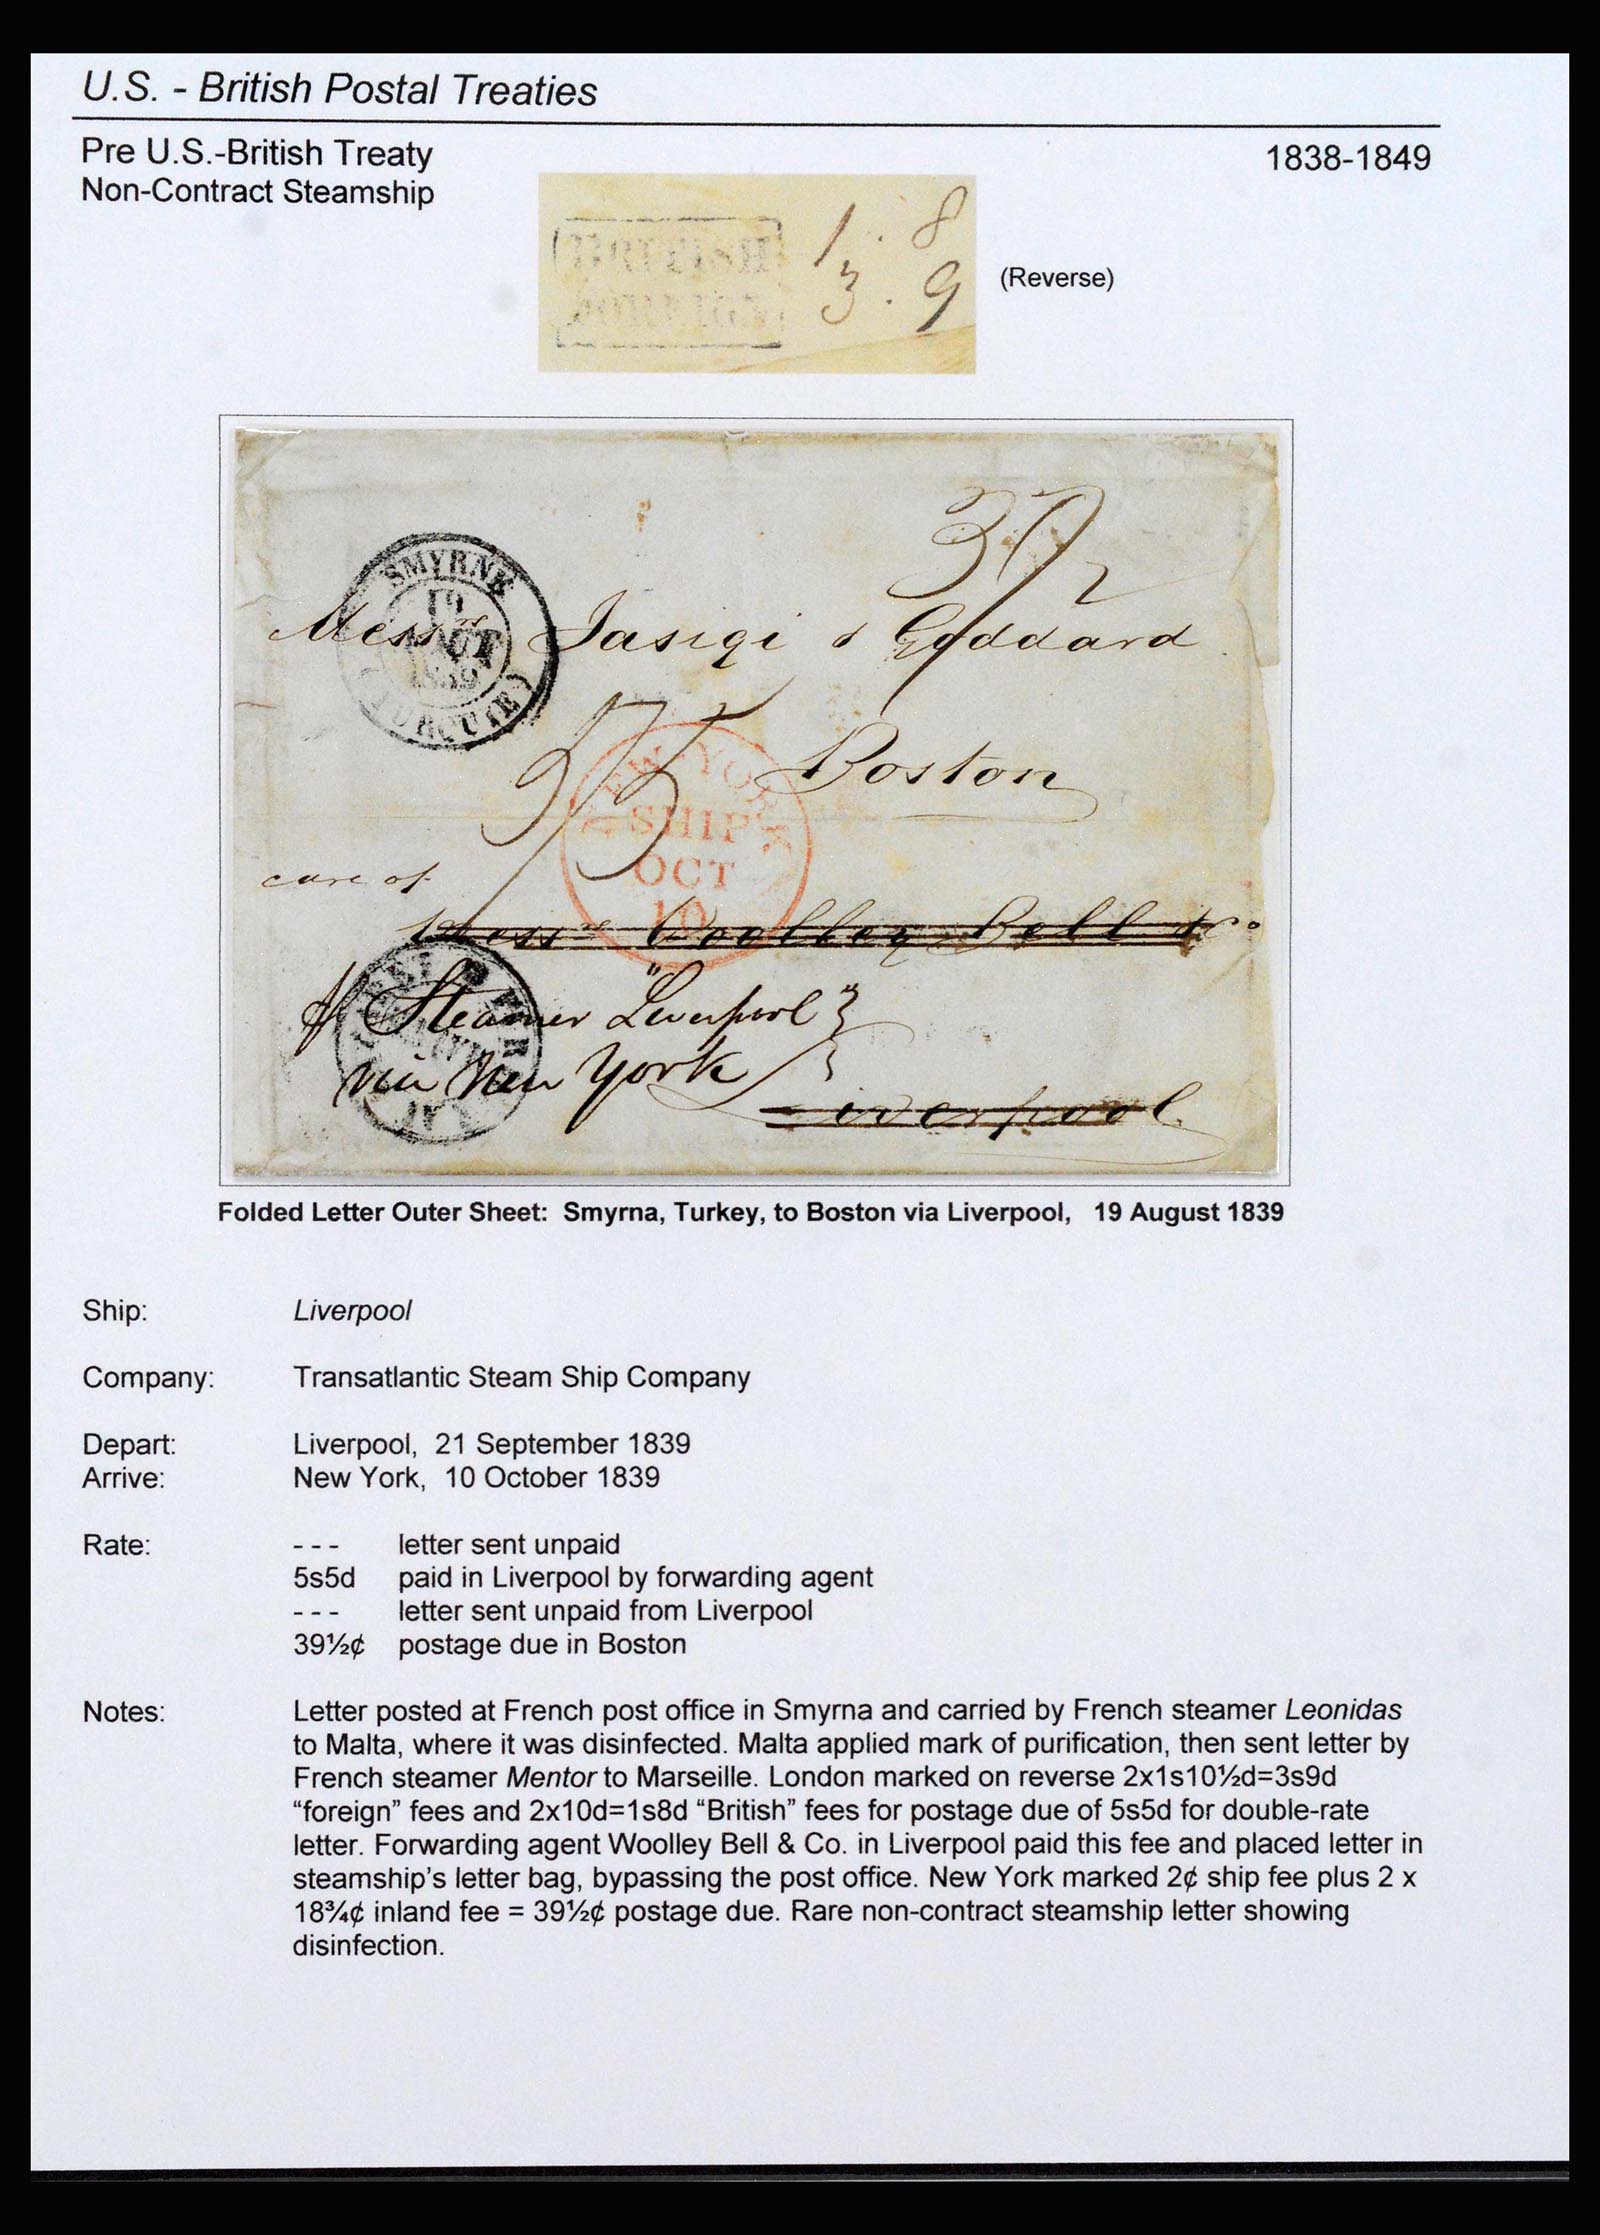 U.S. - British Postal Treaties
Pre U.S.-British Treaty
1838-1849
Non-Contract Steamship
1 . 8
3 . 9
(Reverse)
SMYRNE
19
AOUT
1839
(TURQUIE)
Messrs Iasigi & Goddard
5/5
Boston
NEW-YORK
SHIP
OCT
10
care of
Messrs Woolley Bell & Co
pr Steamer "Liverpool"
via New York
Liverpool
Folded Letter Outer Sheet: Smyrna, Turkey, to Boston via Liverpool, 19 August 1839
Ship: Liverpool
Company: Transatlantic Steam Ship Company
Depart: Liverpool, 21 September 1839
Arrive: New York, 10 October 1839
Rate: - - - letter sent unpaid
5s5d paid in Liverpool by forwarding agent
- - - letter sent unpaid from Liverpool
39½¢ postage due in Boston
Notes: Letter posted at French post office in Smyrna and carried by French steamer Leonidas
to Malta, where it was disinfected. Malta applied mark of purification, then sent letter by
French steamer Mentor to Marseille. London marked on reverse 2x1s10½d=3s9d
“foreign” fees and 2x10d=1s8d “British” fees for postage due of 5s5d for double-rate
letter. Forwarding agent Woolley Bell & Co. in Liverpool paid this fee and placed letter in
steamship’s letter bag, bypassing the post office. New York marked 2¢ ship fee plus 2 x
18¾¢ inland fee = 39½¢ postage due. Rare non-contract steamship letter showing
disinfection.